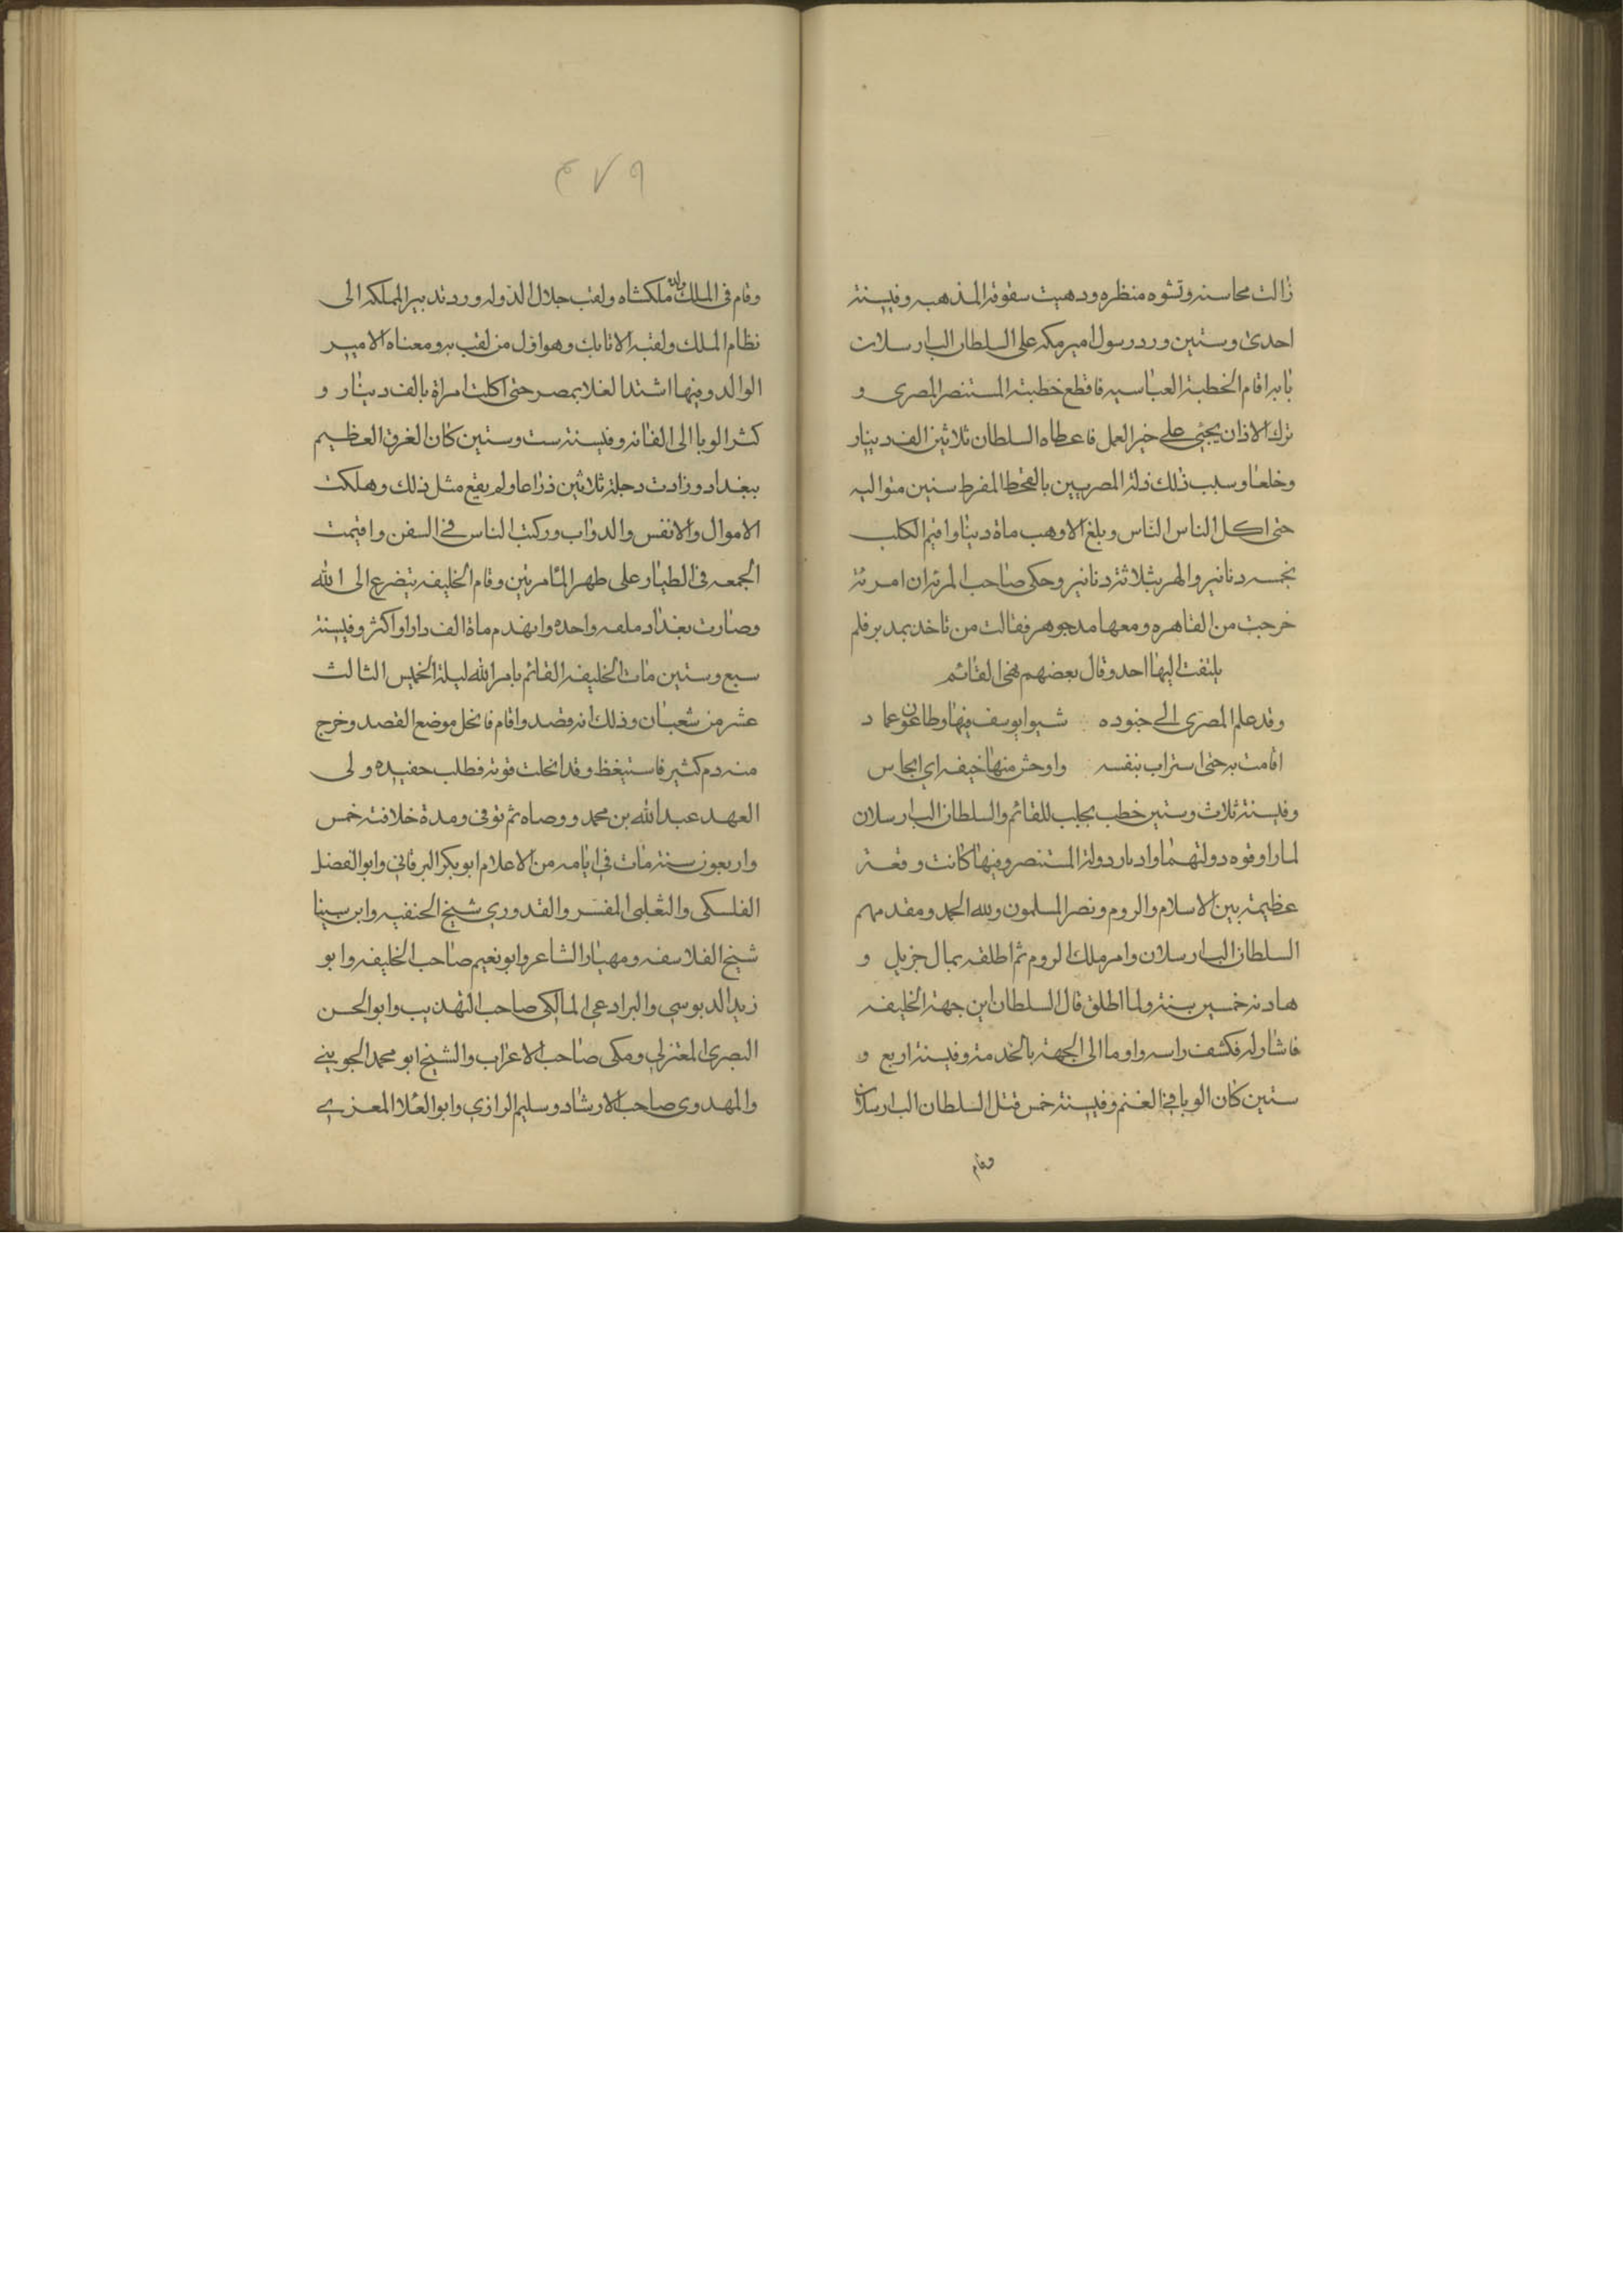 زالت محاسنه وتشوه منظره ودهيت سقوفه المذهبه وفي سنة
احدى وستين ورد رسول امير مكه على السلطان الب ارسلان
بانه اقام الخطبة العباسيه فاقطع خطبة المستنصر المصرى و
ترك الاذان بحي على خير العمل فاعطاه السلطان ثلاثين الف دينار
وخلعا وسبب ذلك ذلة المصريين بالقحط المفرط سنين متواليه
حتى اكل الناس الناس وبلغ الاوهب ماة دينارا وقيم الكلب
بخمسه دنانير والهر بثلاثة دنانير وحكى صاحب المرئران امرئة
خرجت من القاهره ومعها مد جوهر فقالت من تاخذ بمد بر فلم
يلتفت اليها احد وقال بعضهم هنى القائم
وقد علم المصرى الى جنوده سنيوا يوسف فيها وطاعون عماد
اقامت به حتى استراب بنفسه واوحش منها خيفه اي ايجاس
وفي سنة ثلاث وستين خطب بحلب للقائم والسلطان الب ارسلان
لما راوا قوه دولتهما وادبار دولة المستنصر وفيها كانت وقعة
عظيمة بين الاسلام والروم ونصر المسلمون ولله الحمد ومقدمهم
السلطان الب ارسلان وامر ملك الروم ثم اطلقه بمال جزيل و
هادنه خمسين سنة ولما اطلق قال السلطان اين جهة الخليفه
فاشار له فكشف راسه واوما الى الجهة بالخدمة وفي سنة اربع و
ستين كان الوبا في الغنم وفي سنة خمس قتل السلطان الب ارسلان
وقام
٤٧٩
وقام فى الملك ولده ملكشاه ولقب جلال الدوله ورد تدبير المملكه الى
نظام الملك ولقبه الاتابك وهو اول من لقب به ومعناه الامير
الوالد وفيها اشتد الغلا بمصر حتى اكلت امراة بالف دينار و
كثر الوبا الى الغانه وفي سنة ست وستين كان الغرق العظيم
ببغداد وزادت دجلة ثلاثين ذراعا ولم يقع مثل ذلك وهلكت
الاموال والانفس والدواب وركبت الناس في السفن واقيمت
الجمعه في الطيار على ظهر الما مرتين وقام الخليفه يتضرع الى الله
وصارت بغداد ملقه واحده وانهدم ماة الف دارا واكثر وفي سنة
سبع وستين مات الخليفه القائم بامر الله ليلة الخميس الثالث
عشر من شعبان وذلك انه فصد واقام فانحل موضع الفصد وخرج
منه دم كثير فاستيغظ وقد انحلت قوته فطلب حفيده ولى
العهد عبد الله بن محمد ووصاه ثم توفى ومدة خلافته خمس
واربعون سنة مات في ايامه من الاعلام ابو بكر البرقاني وابو الفضل
الفلسكى والثعلبى المفسر والقدوري شيخ الحنفيه وابن سينا
شيخ الفلاسفه ومهيار الشاعر وابو نعيم صاحب الخليفه وابو
زيد الدبوسي والبرادعي المالكى صاحب التهذيب وابو الحسن
البصرى المعتزلي ومكى صاحب الاعراب والشيخ ابو محمد الجوينى
والمهدوى صاحب الارشاد وسليم الرازي وابو العلا المعزي